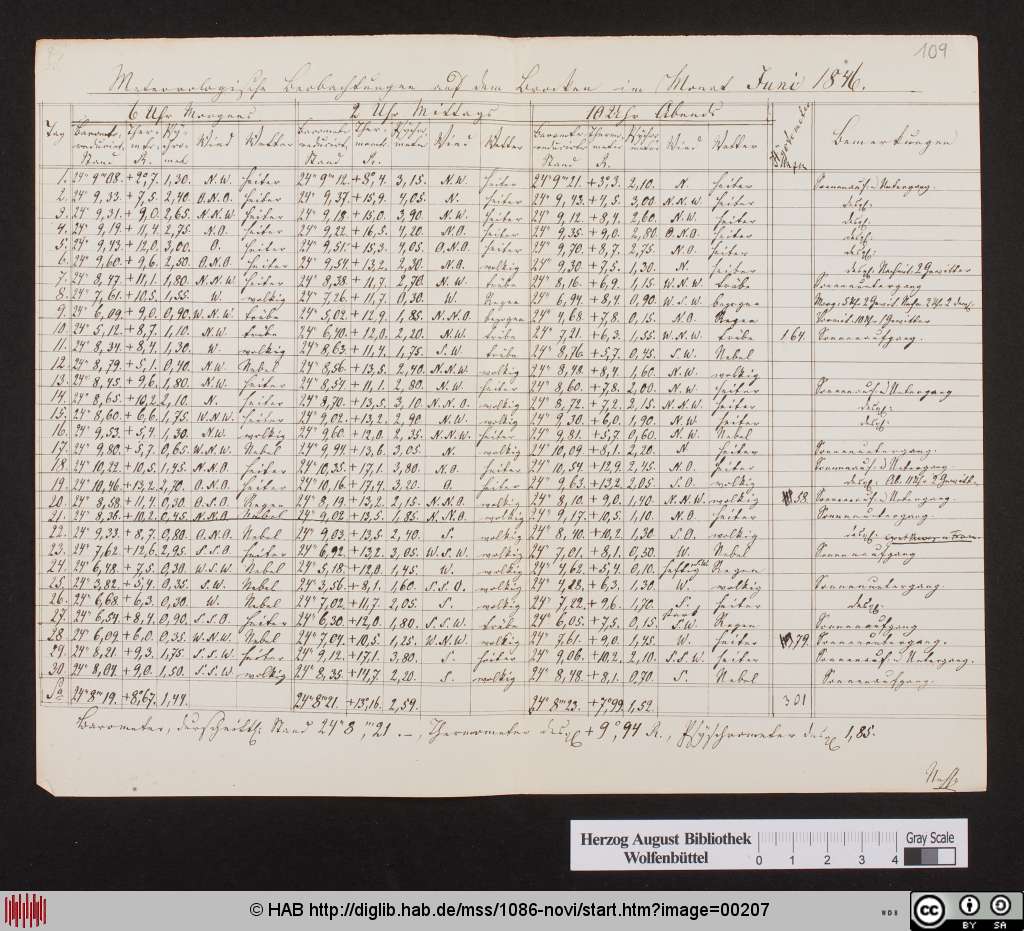 109
Meteorologische Beobachtungen auf dem Brocken im Monat Juni 1846.
6 Uhr Morgens 2 Uhr Mittags 10 Uhr Abends
Tag Barometr. reducirt. Stand Thermomtr. R. Psychromet Wind Wetter Barometr reducirt. Stand Thermomt. R. Psychrometer Wind Wetter Barometr reducirt. Stand Thermometr R. Psychrometer Wind Wetter Hyetometer Bemerkungen
1. 24" 9"'08. +2°,7. 1,30. N.W. heiter 24" 9"'12. +8°,4. 3,15. N.W. heiter 24" 9"'21. +3°,3. 2,10. N. heiter Sonnenauf- u. Untergang.
2. 24" 9,33. +7,5. 2,40. O.N.O. heiter 24" 9,37. +15,9. 4,05. N. heiter 24" 9,43. +7,5. 3,00 N.N.W. heiter desgl.
3. 24" 9,31. +9,0. 2,65. N.N.W. heiter 24" 9,18. +15,0. 3,90. N.W. heiter 24" 9,12. +8,4. 2,60. N.W. heiter desgl.
4. 24" 9,19. +11,4. 2,75. N.O. heiter 24" 9,22. +16,5. 4,20. N.O. heiter 24" 9,35. +9,0. 2,80. O.N.O. heiter desgl.
5. 24" 9,43. +12,0. 3,00. O. heiter 24" 9,51. +15,3. 4,05. O.N.O. heiter 24" 9,70. +8,7. 2,75. N.O. heiter desgl.
6. 24" 9,60. +9,6. 2,50. O.N.O. heiter 24" 9,54. +13,2. 2,30. N.O. wolkig 24" 9,30. +7,5. 1,30. N. heiter desgl. Nachmit. 2 Gewitter
7. 24" 8,47. +11,1. 1,80. N.N.W. heiter 24" 8,38. +11,7. 2,70. N.W. trübe 24" 8,16. +6,9. 1,15. W.N.W. trübe Sonnenuntergang
8. 24" 7,61. +10,5. 1,55. W. wolkig 24" 7,26. +11,7. 0,30. W. Regen 24" 6,94. +8,4. 0,90. W.S.W. bezogen
9. 24" 6,09. +9,0. 0,90. W.N.W. trübe 24" 5,02. +12,9. 1,85. N.N.O. bezogen 24" 4,68. +7,8. 0,15. N.O. Regen
10. 24" 5,12. +8,7. 1,10. N.W. trübe 24" 6,40. +12,0. 2,20. N.W. trübe 24" 7,21. +6,3. 1,55. W.N.W. trübe 164. Sonnenaufgang.
11. 24" 8,34. +8,4. 1,30. W. wolkig 24" 8,63. +11,4. 1,75. S.W. trübe 24" 8,76. +5,7. 0,45. S.W. Nebel
12. 24" 8,79. +5,1. 0,40. N.W. Nebel 24" 8,56. +13,5. 2,40. N.N.W. wolkig 24" 8,48. +8,4. 1,60. N.W. wolkig
13. 24" 8,45. +9,6. 1,80. N.W. heiter 24" 8,54. +11,1. 2,80. N.W. heiter 24" 8,60. +7,8. 2,00. N.W. heiter Sonnenauf- u. Untergang
14. 24" 8,65. +10,2. 2,10. N. heiter 24" 8,70. +13,5. 3,10. N.N.O. wolkig 24" 8,72. +7,2. 2,15. N.N.W. heiter desgl.
15. 24" 8,60. +6,6. 1,75. W.N.W. heiter 24" 9,02. +13,2. 2,90. N.W. wolkig 24" 9,30. +6,0. 1,90. N.W. heiter desgl.
16. 24" 9,53. +5,4. 1,30. N.W. wolkig 24" 9,60. +12,0. 2,35. N.N.W. heiter 24" 9,81. +5,7. 0,60. N.W. Nebel
17. 24" 9,80. +5,7. 0,65. W.N.W. Nebel 24" 9,94. +13,6. 3,05. N. wolkig 24" 10,09. +8,1. 2,20. N. heiter Sonnenuntergang.
18. 24" 10,22. +10,5. 1,45. N.N.O. heiter 24" 10,35. +17,1. 3,80. N.O. heiter 24" 10,54. +12,9. 2,45. N.O. heiter Sonnenauf- u. Untergang.
19. 24" 10,46. +13,2. 2,70. O.N.O. heiter 24" 10,16. +17,4. 3,20. O. heiter 24" 9,63. +13,2. 2,05. S.O. wolkig
20. 24" 8,58. +11,4. 0,30. O.S.O. Regen 24" 8,19. +13,2. 2,15. N.N.O. wolkig 24" 8,10. +9,0. 1,40. N.N.W. wolkig 58. Sonnenauf- u. Untergang.
21. 24" 8,38. +10,2. 0,45. N.N.O. Nebel 24" 9,02. +13,5. 1,85. N.N.O. wolkig 24" 9,17. +10,5. 1,10. N.O. heiter Sonnenuntergang.
22. 24" 9,33. +8,7. 0,80. O.N.O. Nebel 24" 9,03. +13,5. 2,40. S. wolkig 24" 8,40. +10,2. 1,30. S.O. wolkig desgl.
23. 24" 7,62. +12,6. 2,95. S.S.O. heiter 24" 6,92. +13,2. 3,05. W.S.W. wolkig 24" 7,01. +8,1. 0,50. W. Nebel Sonnenaufgang
24. 24" 6,48. +7,5. 0,30. W.S.W. Nebel 24" 5,18. +12,0. 1,45. W. wolkig 24" 4,62. +5,4. 0,10. heftig S.W. Regen
25. 24" 3,82. +5,4. 0,35. S.W. Nebel 24" 3,56. +8,1. 1,60. S.S.O. wolkig 24" 4,28. +6,3. 1,30. W. wolkig Sonnenuntergang.
26. 24" 6,68. +6,3. 0,30. W. Nebel 24" 7,02. +11,7. 2,05. S. wolkig 24" 7,22. +9,6. 1,70. S. heiter desgl.
27. 24" 6,54. +8,4. 0,90. S.S.O. heiter 24" 6,30. +12,0. 1,80. S.S.W. trübe 24" 6,05. +7,5. 0,15. S.W. Regen Sonnenaufgang
28. 24" 6,09. +6,0. 0,35. W.N.W. Nebel 24" 7,04. +10,5. 1,25. W.N.W. wolkig 24" 7,61. +9,0. 1,45. W. heiter 79. Sonnenuntergang.
29. 24" 8,21. +9,3. 1,75. S.S.W. heiter 24" 9,12. +17,1. 3,80. S. heiter 24" 9,06. +10,2. 2,10. S.S.W. heiter Sonnenauf- u. Untergang.
30. 24" 8,04. +9,0. 1,50. S.S.W. wolkig 24" 8,35. +14,7. 2,20. S. wolkig 24" 8,48. +8,1. 0,70. S. Nebel Sonnenaufgang.
Sa 24" 8"'19. +8°,67. 1,44. 24" 8"'21. +13°,16. 2,59. 24" 8"'23. +7°,99. 1,52. 301
Barometer, Stand 24" 8,"'21. Thermometer desgl. +9°,94 R., Psychrometer desgl. 1,85.
Herzog August Bibliothek
Wolfenbüttel
0 1 2 3 4
Gray Scale
© HAB http://diglib.hab.de/mss/1086-novi/start.htm?image=00207
WDB
cc BY SA